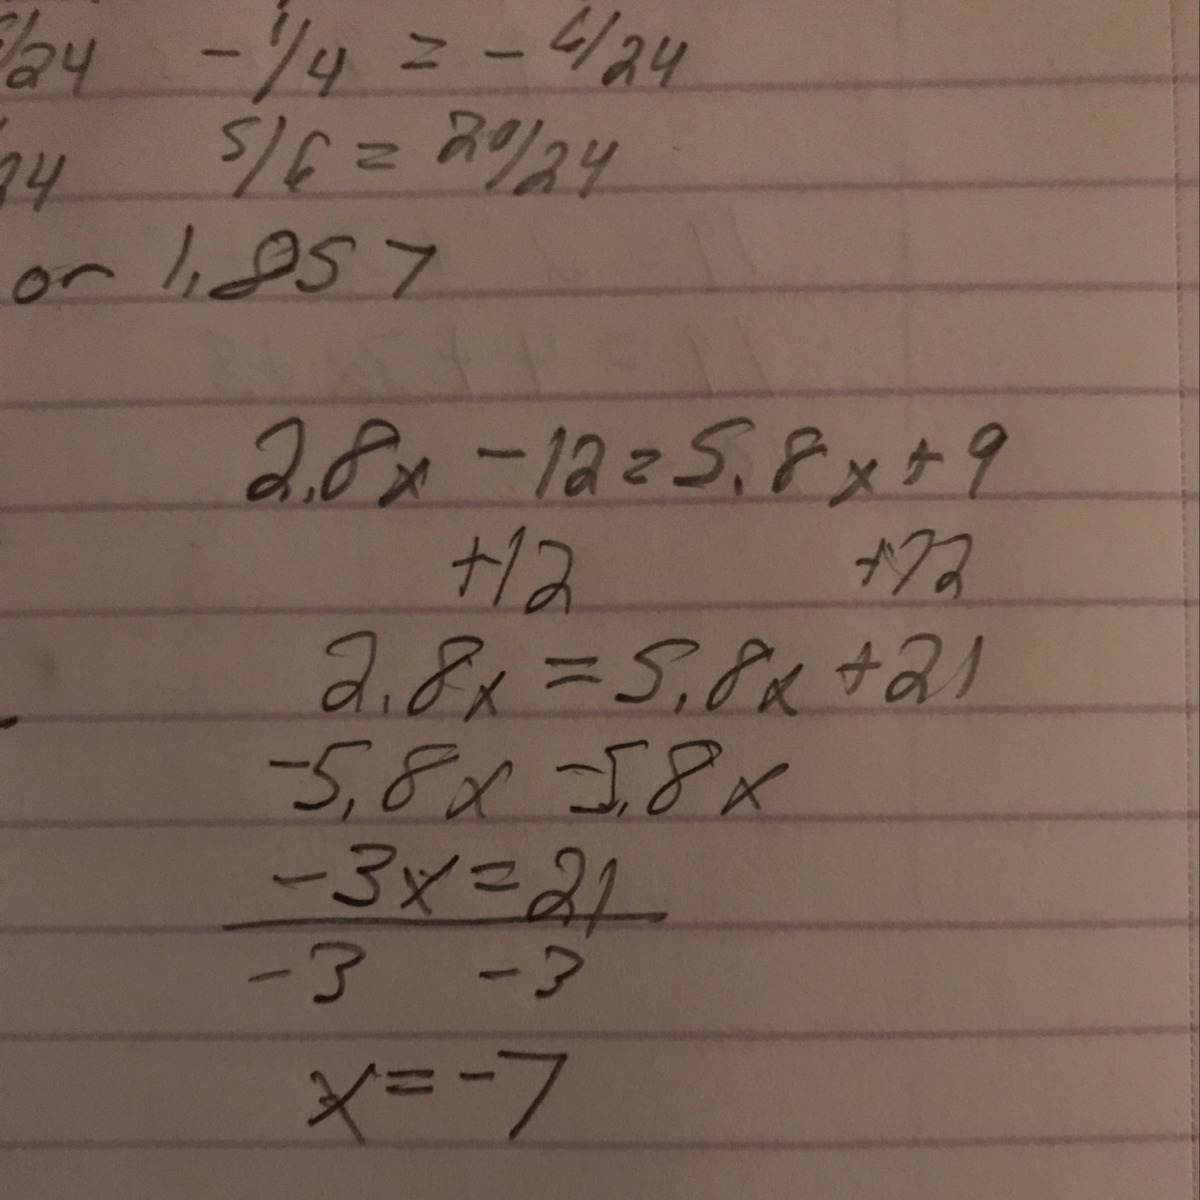 /24 -1/4 = -6/24
24 5/6 = 20/24
or 1.857
2.8x - 12 = 5.8x + 9
+12 +12
2.8x = 5.8x + 21
-5.8x -5.8x
-3x = 21
-3 -3
x = -7